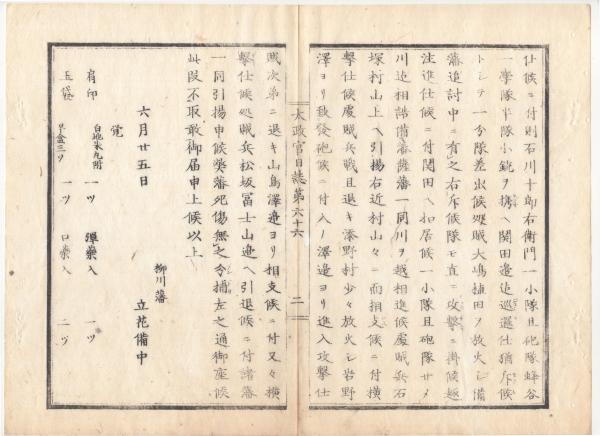 仕候ニ付則石川十郎右衛門一小隊且砲隊蜂谷
一學隊半隊小銃ヲ携ヘ関田邊迄巡邏仕猶斥候
トシテ一分隊差出候処賊大嶋植田ヲ放火シ備
藩追討中ニ有之右斥候隊モ直ニ攻撃ニ掛候趣
注進仕候ニ付関田ヘ扣居候一小隊且砲隊廿メ
川迄相詰備藩薩藩一同川ヲ越相進候處賊兵石
塚村山上ヘ引揚右近村山々ニ而相支候ニ付横
撃仕候處賊兵戦且退キ添野村少々放火シ岩野
澤ヨリ致發砲候ニ付入ノ澤邊ヨリ進入攻撃仕
太政官日誌第六十六
二
賊次第ニ退キ山鳥澤邊ヨリ相支候ニ付又々横
撃仕候処賊兵松坂冨士山邊ヘ引退候ニ付諸藩
一同引揚申候獘藩死傷無之分捕左之通御座候
此段不取敢御届申上候以上
柳川藩
六月廿五日 立花備中
覚
肩印 白地朱丸附 一ツ 彈藥入 一ツ
玉袋 一ツ 口藥入 二ツ